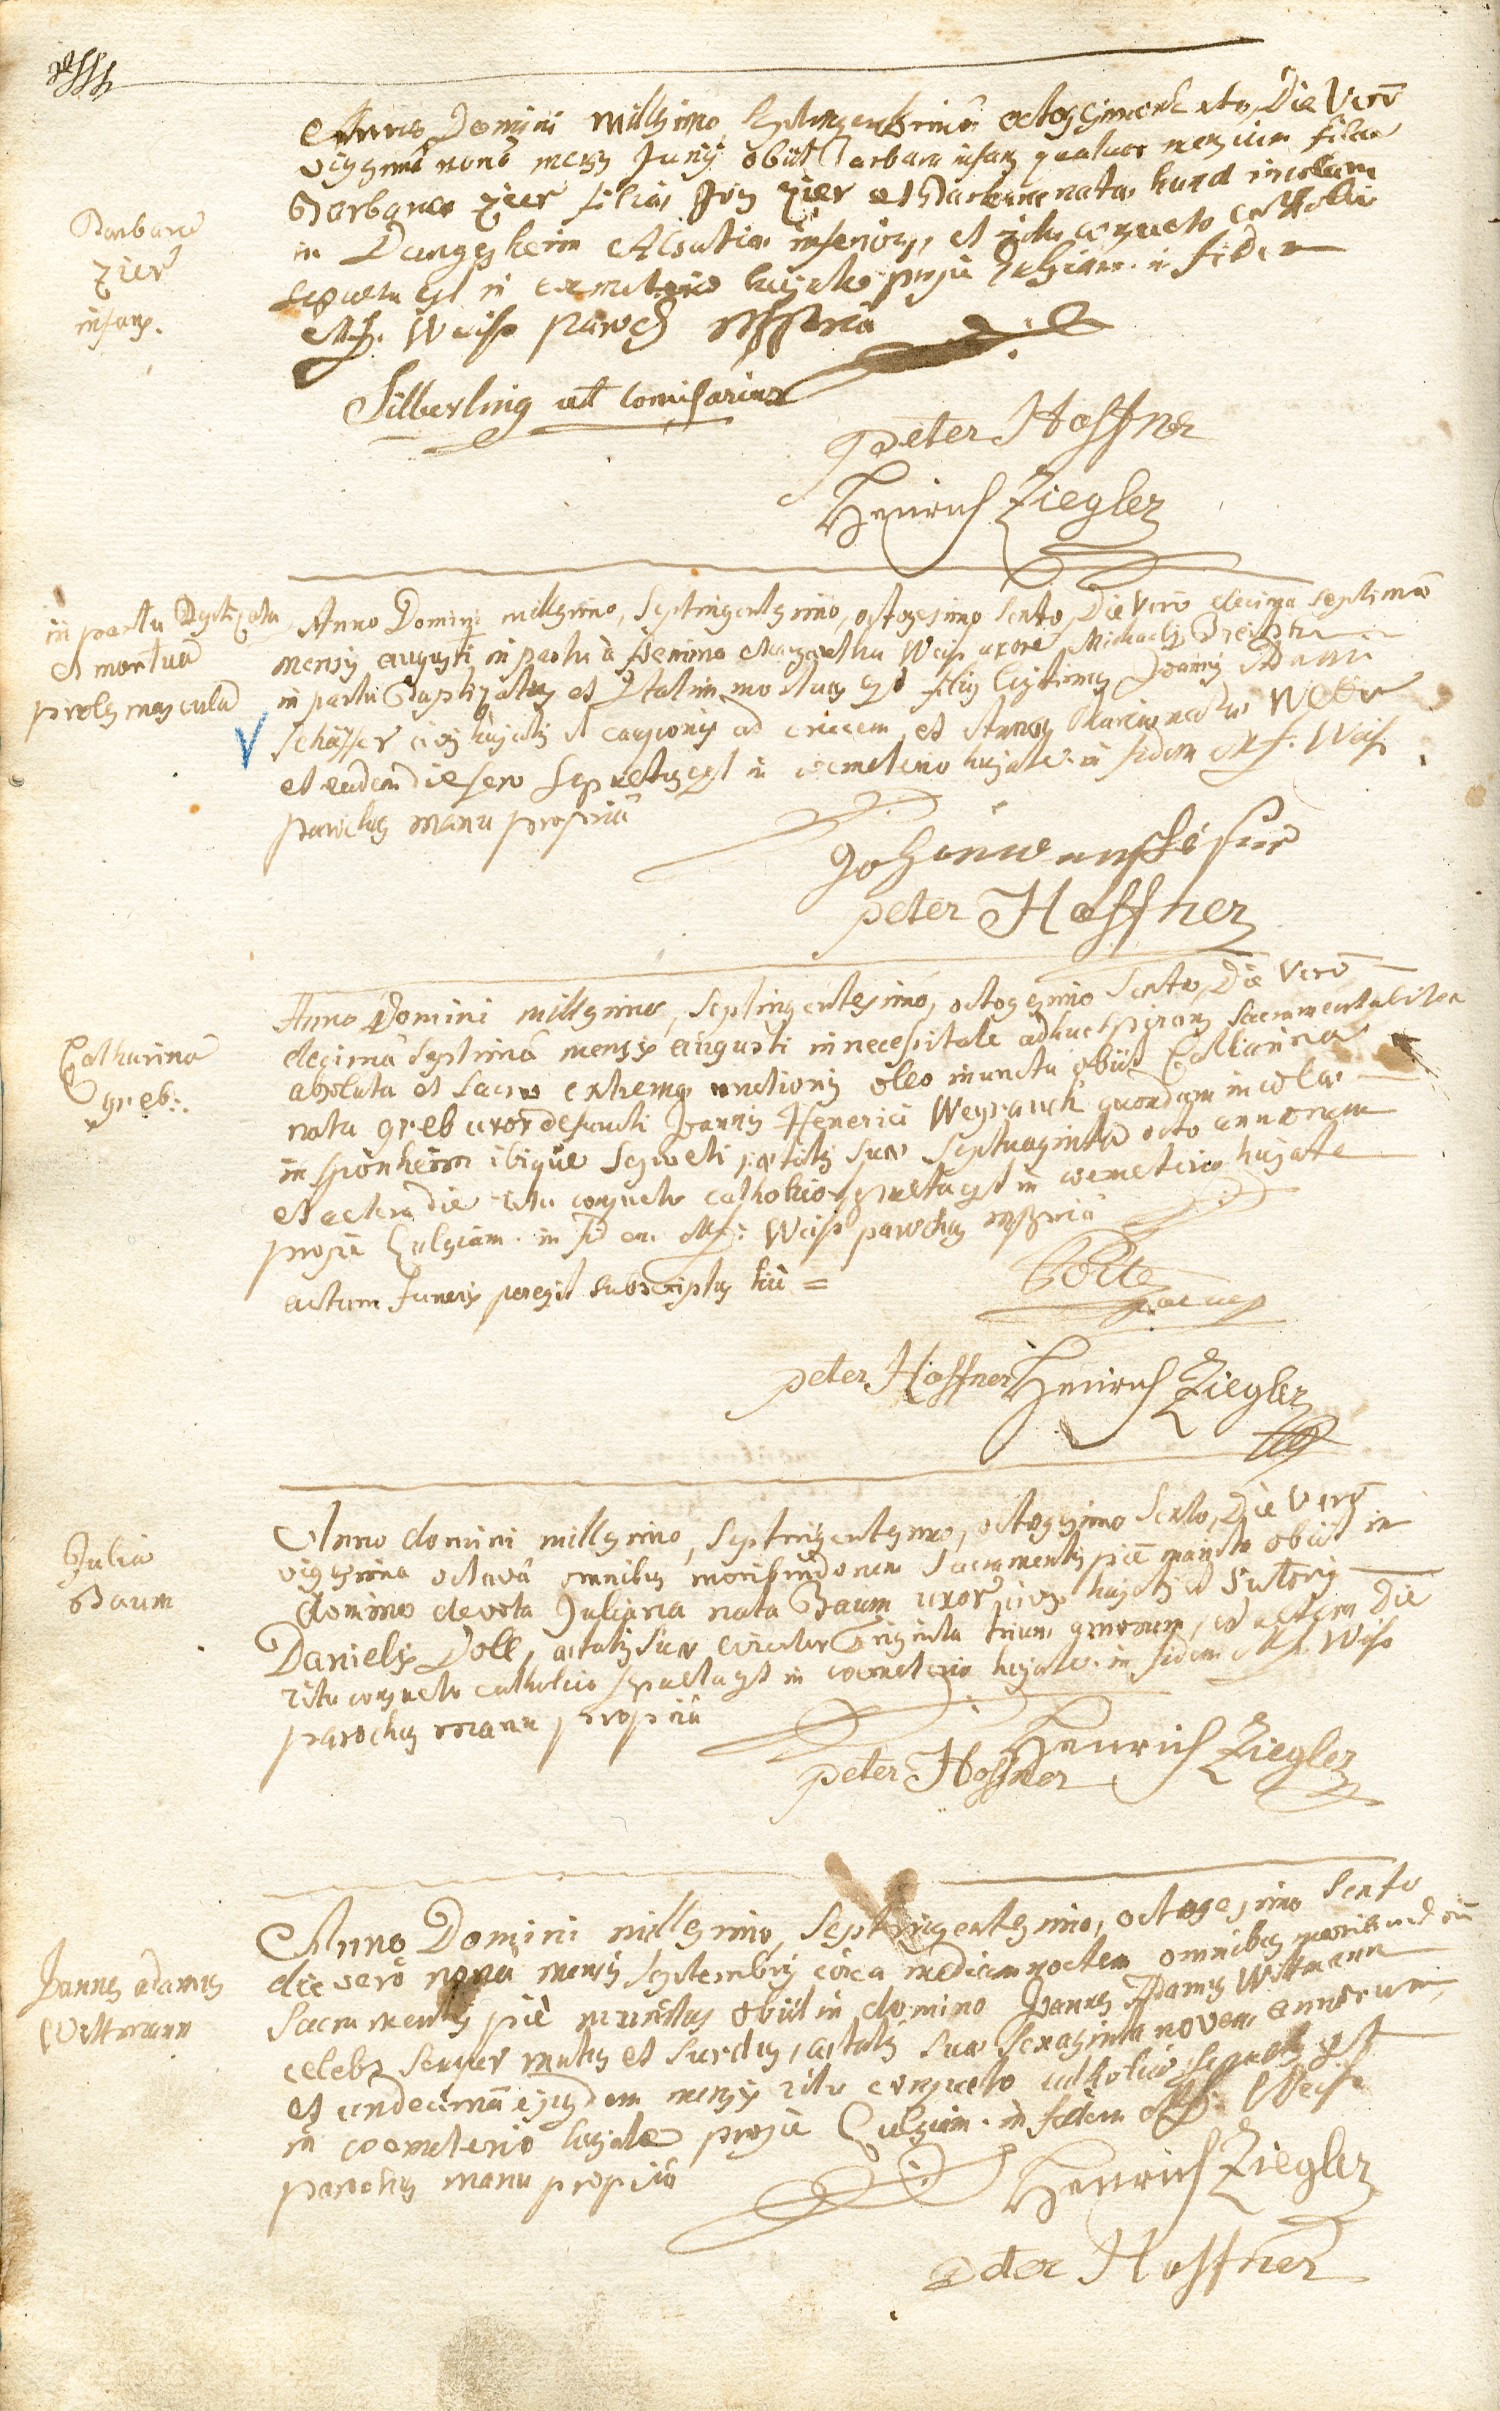 Barbara
Zier
infans.
Anno Domini millesimo, septingentesimo octogesimo sexto, Die Verô
vigesimâ nonâ mensis Junij obiit Barbara infans quatuor mensium filia
Barbara Zier filia Zier et Barbara nata hund incolarum
in Dangsheim Alsatiae inferioris, et ritu consueto catholico
sepulta est in coemeterio hujate in fidem
M. f. Weiss paroch mppria
Silberling ut Comisarius
peter Hoffner
Henrich Ziegler
in partu Baptizata
et mortua
proles mascula
Anno Domini millesimo, septingentesimo, octogesimo sexto, Die Verô decima septima
mensis augusti in partu â femina Margaretha Weis uxore Michaelis
in partu Baptizatus et statim mortuus est filius legitimus Joannis Adami
schäffer civis hujatis et cauponis ad crucem, et Annae Mariae natae Weber
et eadem die sero sepultus est in coemeterio hujate. in fidem M. f. Weiss
parochus manu propriâ
peter Hoffner
Catharina
greb:.
Anno Domini millesimo, septingentesimo, octogesimo sexto, Die Verô
decimâ septimâ mensis augusti in necessitate adhuc spirans sacramentaliter
absoluta et sacro extremae unctionis oleo inuncta obiit Catharina
nata greb uxor defuncti Joannis Henerici Weyrauch quondam incolae
in sponheim ibique sepulti, aetatis suae septuaginta octo annorum
et altera die ritu consueto catholico sepulta est in coemeterio hujate
prope Eclesiam. in fidem. M. f: Weiss parochus mppriâ
actum funeris peregit subscriptus hic =
peter Hoffner Henrich Ziegler
Julia
Baum
Anno domini millesimo, septingentesimo, octogesimo sexto, Die Verô
vigesima octavâ omnibus moribundorum sacramentis piè munita obiit in
domino devota Juliana nata Baum uxor civis hujatis et sutoris
Danielis Doll, aetatis suae circiter triginta trium annorum, et altera die
ritu consueto catholico sepulta est in coemeterio hujate. in fidem M. f. Weiss
parochus manu propriâ
Henrich Ziegler
peter Hoffner
Joannes adamus
Wittmann
Anno Domini millesimo, septingentesimo, octogesimo sexto
die verô nona mensis septembris circa mediam noctem omnibus moribundorum
sacramentis piè munitus obiit in domino Joannes Adamus Wittmann
celebs semper mutus et surdus, aetatis suae sexaginta novem annorum,
et undecimâ ejusdem mensis ritu consueto catholico sepultus est
in coemeterio hujate prope Eclesiam. in fidem M. f. Weiss
parochus manu propriâ
Henrich Ziegler
peter Hoffner